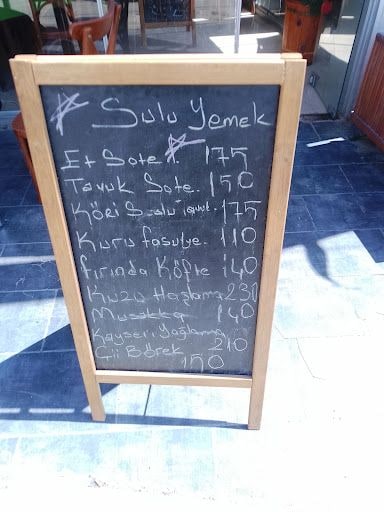 Sulu Yemek
Et Sote 175
Tavuk Sote 150
Köri Soslu tavuk 175
Kuru fasulye 110
fırında Köfte 140
Kuzu Haşlama 230
Musakka 140
Kayseri Yağlama 210
Çii Börek 150